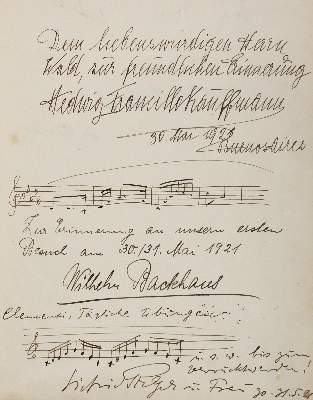 Dem liebenswürdigen Herrn
Wald, zur freundlichen Erinnerung
Hedwig Francillo Kauffmann
30 Mai 192
Buenosaires
Zur Erinnerung an unsern ersten
Besuch am 30./31. Mai 1921
Wilhelm Backhaus
Clementi, Tägliche Übungen:
u. s. w. bis zum
verrücktwerden!
u Frau 30-31.5.21